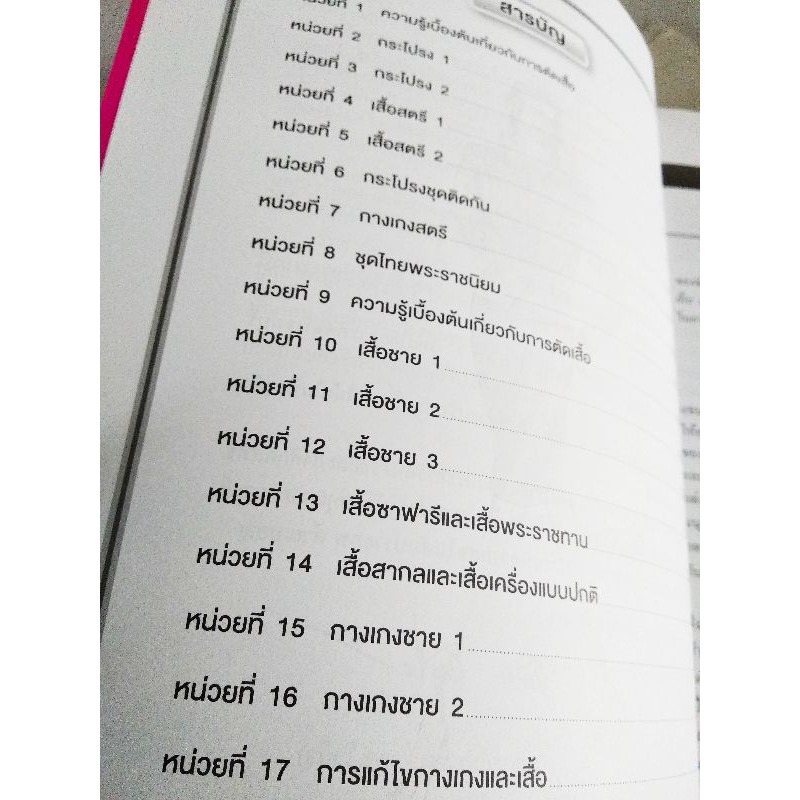 สารบัญ
หน่วยที่ 1 ความรู้เบื้องต้นเกี่ยวกับการตัดเสื้อ
หน่วยที่ 2 กระโปรง 1
หน่วยที่ 3 กระโปรง 2
หน่วยที่ 4 เสื้อสตรี 1
หน่วยที่ 5 เสื้อสตรี 2
หน่วยที่ 6 กระโปรงชุดติดกัน
หน่วยที่ 7 กางเกงสตรี
หน่วยที่ 8 ชุดไทยพระราชนิยม
หน่วยที่ 9 ความรู้เบื้องต้นเกี่ยวกับการตัดเสื้อ
หน่วยที่ 10 เสื้อชาย 1
หน่วยที่ 11 เสื้อชาย 2
หน่วยที่ 12 เสื้อชาย 3
หน่วยที่ 13 เสื้อซาฟารีและเสื้อพระราชทาน
หน่วยที่ 14 เสื้อสากลและเสื้อเครื่องแบบปกติ
หน่วยที่ 15 กางเกงชาย 1
หน่วยที่ 16 กางเกงชาย 2
หน่วยที่ 17 การแก้ไขกางเกงและเสื้อ